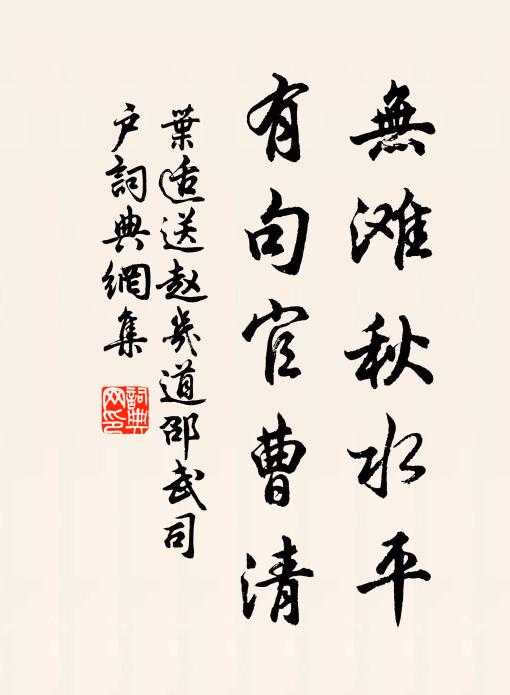 無滩秋水平
有句官曹清
葉适送赵幾道邵武司
户詞典網集
詞典網印